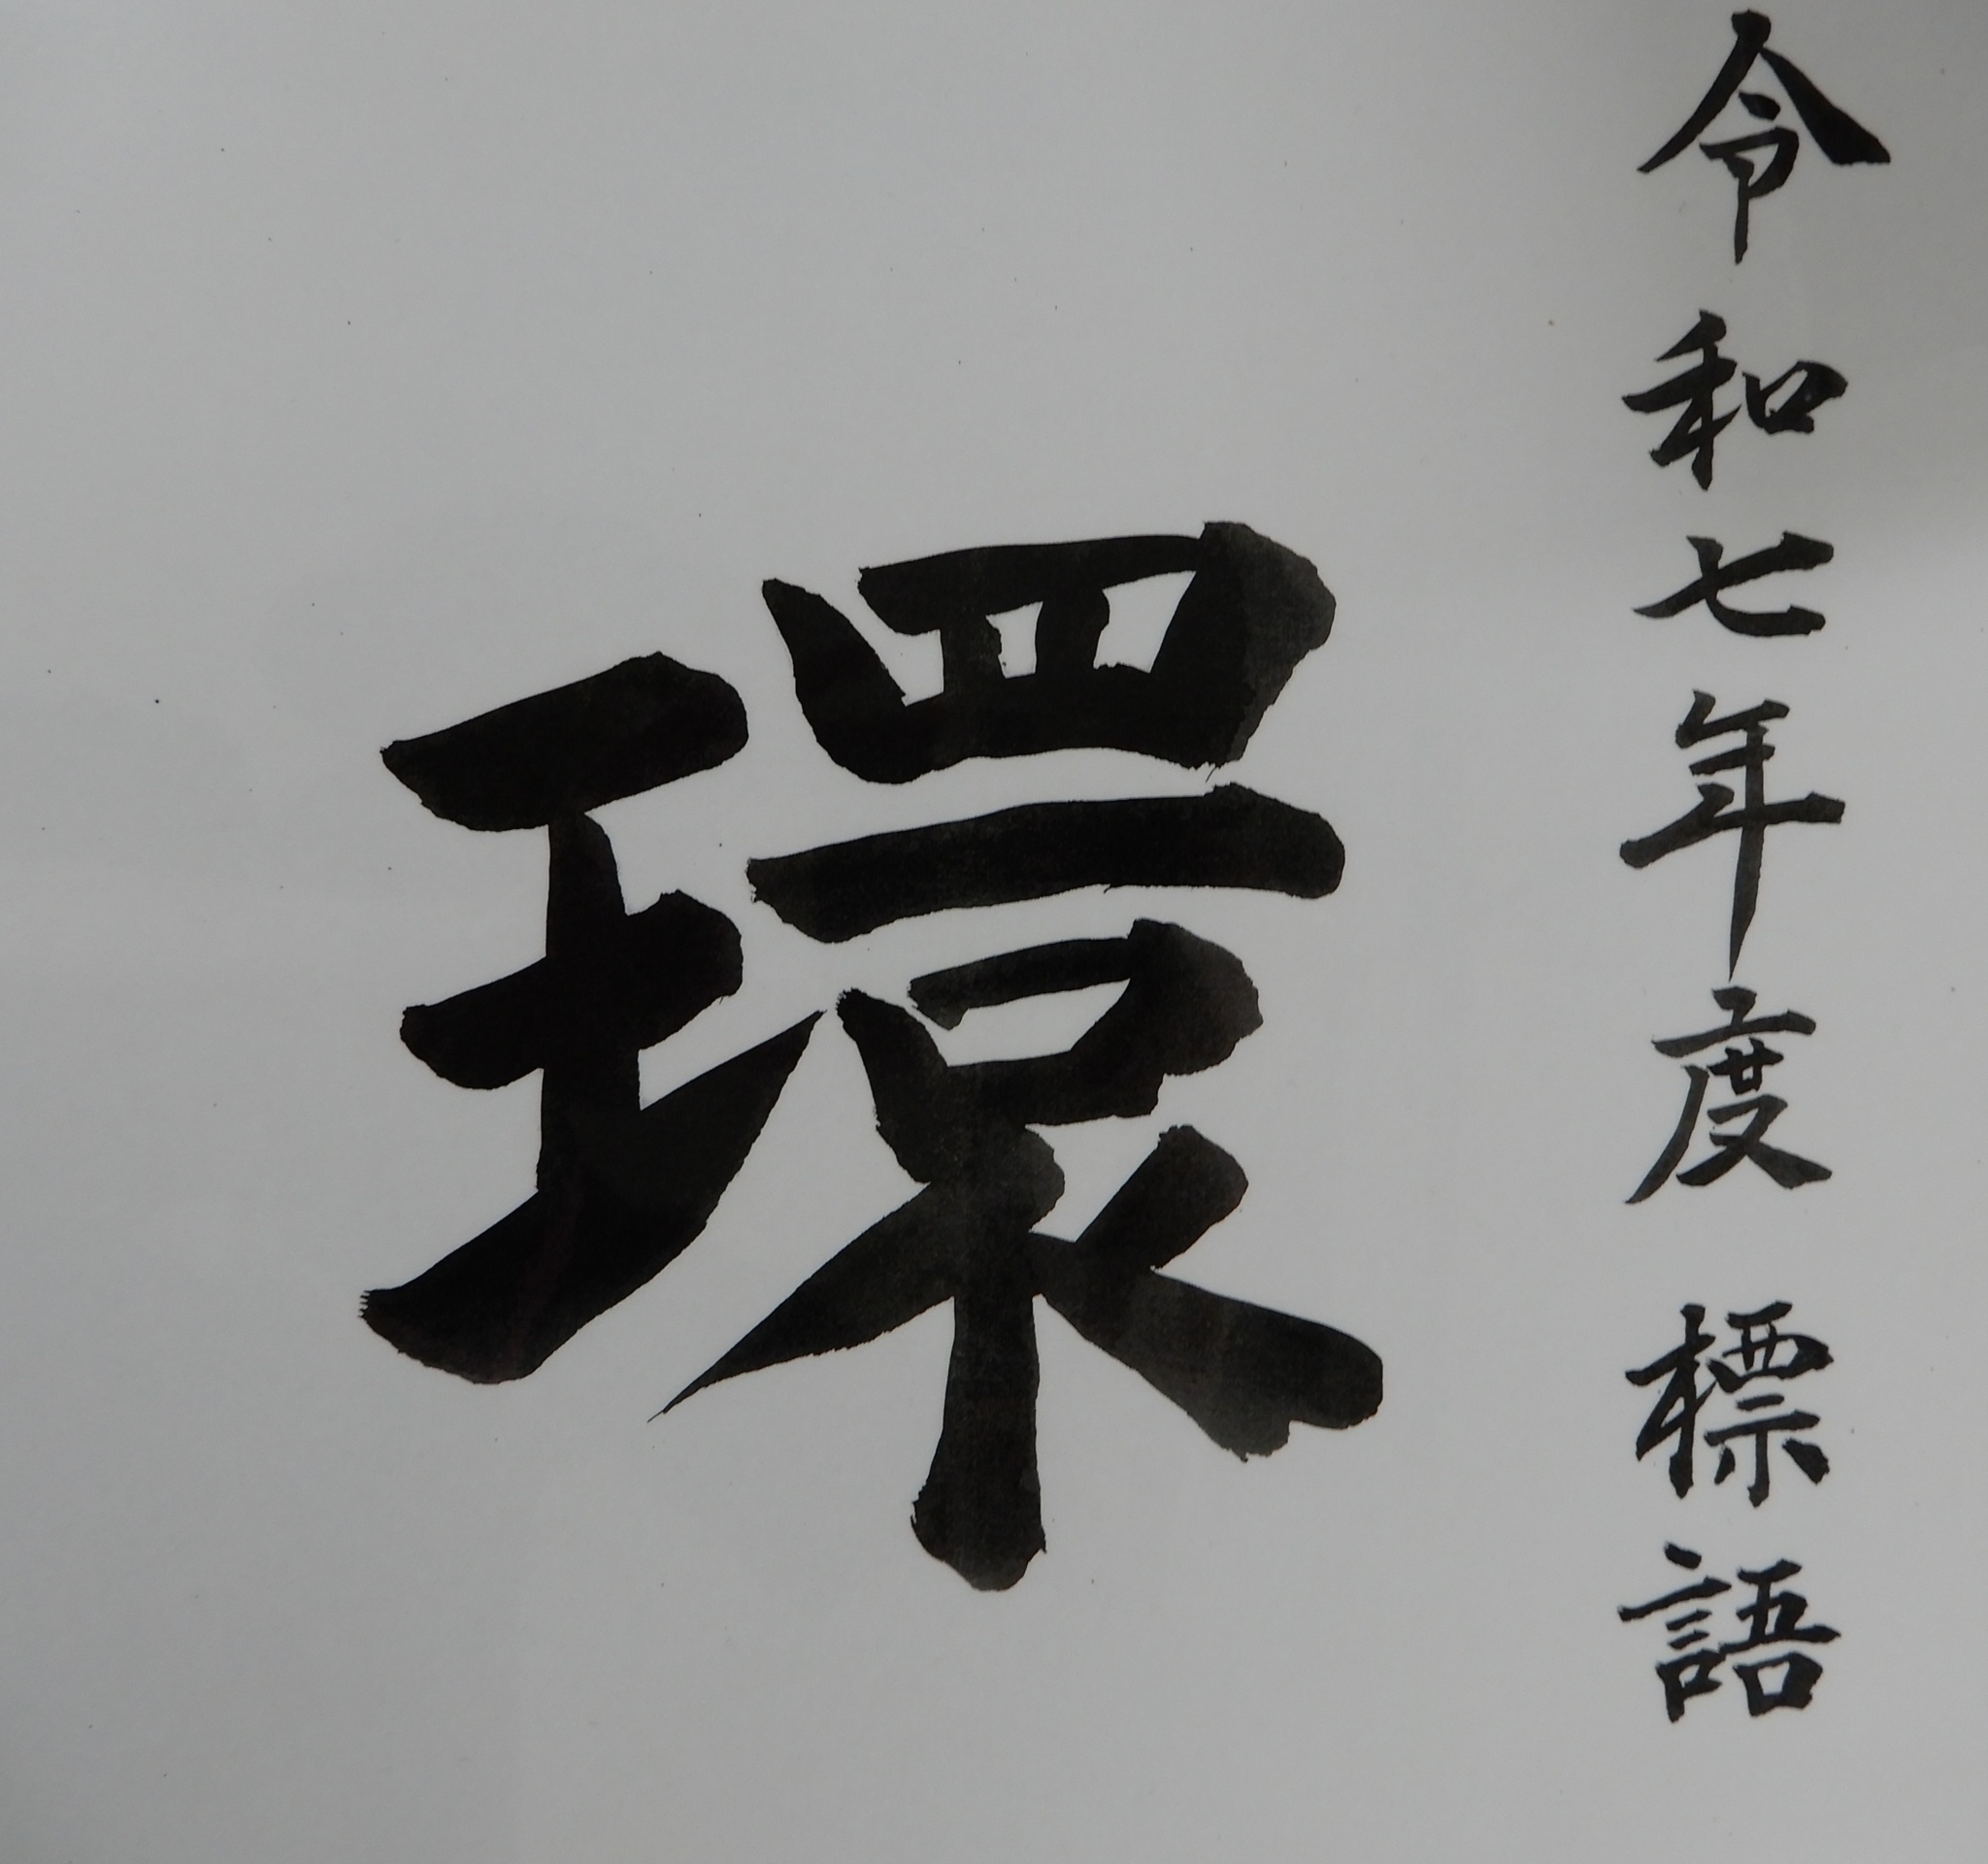 令和七年度 標語
環